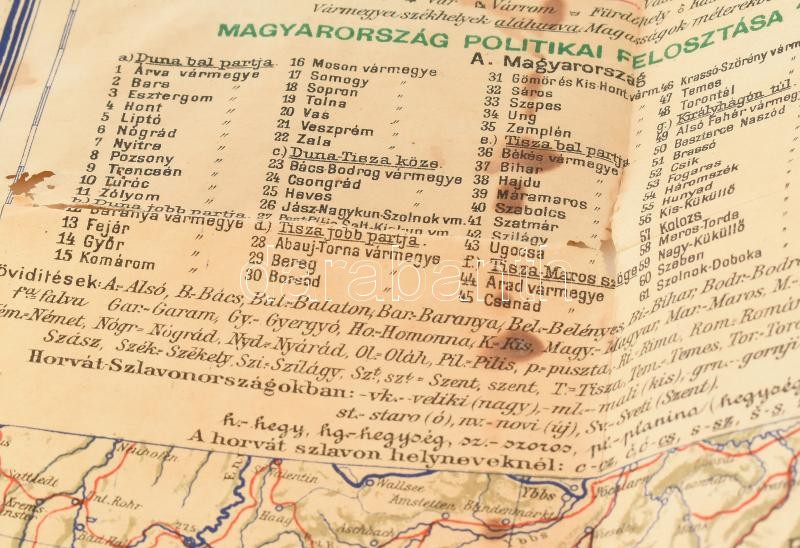 Vármegyei székhelyek aláhuzva. Magasságok méterekb
MAGYARORSZÁG POLITIKAI FELOSZTÁSA
A. Magyarország
a) Duna bal partja.
1 Árva vármegye
2 Bars „
3 Esztergom „
4 Hont „
5 Liptó „
6 Nógrád „
7 Nyitra „
8 Pozsony „
9 Trencsén „
10 Túróc „
11 Zólyom „
b) Duna jobb partja.
12 Baranya vármegye
13 Fejér „
14 Győr „
15 Komárom „
16 Moson vármegye
17 Somogy „
18 Sopron „
19 Tolna „
20 Vas „
21 Veszprém „
22 Zala „
c) Duna-Tisza köze.
23 Bács-Bodrog vármegye
24 Csongrád „
25 Heves „
26 Jász-Nagykun-Szolnok vm.
27 Pest-Pilis-Solt-Kiskun vm.
d) Tisza jobb partja.
28 Abauj-Torna vármegye
29 Bereg „
30 Borsod „
31 Gömör és Kis-Hont várm.
32 Sáros „
33 Szepes „
34 Ung „
35 Zemplén „
e.) Tisza bal partja
36 Békés vármegye
37 Bihar „
38 Hajdu „
39 Máramaros „
40 Szabolcs „
41 Szatmár „
42 Szilágy „
43 Ugocsa „
f.) Tisza-Maros szöge
44 Arad vármegye
45 Csanád „
46 Krassó-Szörény várm
47 Temes
48 Torontál
g.) Királyhágón túl.
49 Alsó Fehér vármegy
50 Beszterce Naszód
51 Brassó
52 Csik
53 Fogaras
54 Háromszék
55 Hunyad
56 Kis-Küküllő
57 Kolozs
58 Maros-Torda
59 Nagy-Küküllő
60 Szeben
61 Szolnok-Doboka
öviditések: A.- Alsó, B.-Bács, Bal.-Balaton, Bar.-Baranya, Bel.-Belényes, Bi-Bihar, Bodr.-Bodro
fa/falva Gar.-Garam, Gy.-Gyergyó, Ho-Homonna, K.-Kis, Magy.-Magyar, Mar.-Maros, M.-
ém.-Német, Nógr.-Nógrád, Nyd.-Nyárád, Ol.-Oláh, Pil.-Pilis, p.=puszta, Ri.-Rima, Rom.-Román
Szász, Szék.-Székely, Szi-Szilágy, Szt, szt = Szent, szent, T=Tisza, Tem.-Temes, Tor-Toro
Horvát-Szlavonországokban: -vk.- veliki (nagy), -ml.- mali (kis), grn.- gornji
st.- staro (ó), nv.- novi (új), Sv.-Sveti (Szent).
h.-hegy, hg.-hegység, sz.- szoros, pl.-planina (hegység
A horvát szlavon helyneveknél: c-cz, č, ć-cs, s-sz, š-s,
darabanth
Neuhofen
Sattledt
Int. Rohr
Krems
Bad Hall
Haag
Valentin
Wallsee
Amstetten
Aschbach
Blindenmarkt
Ybbs
Ybbs
Pöchlarn
Wiesel